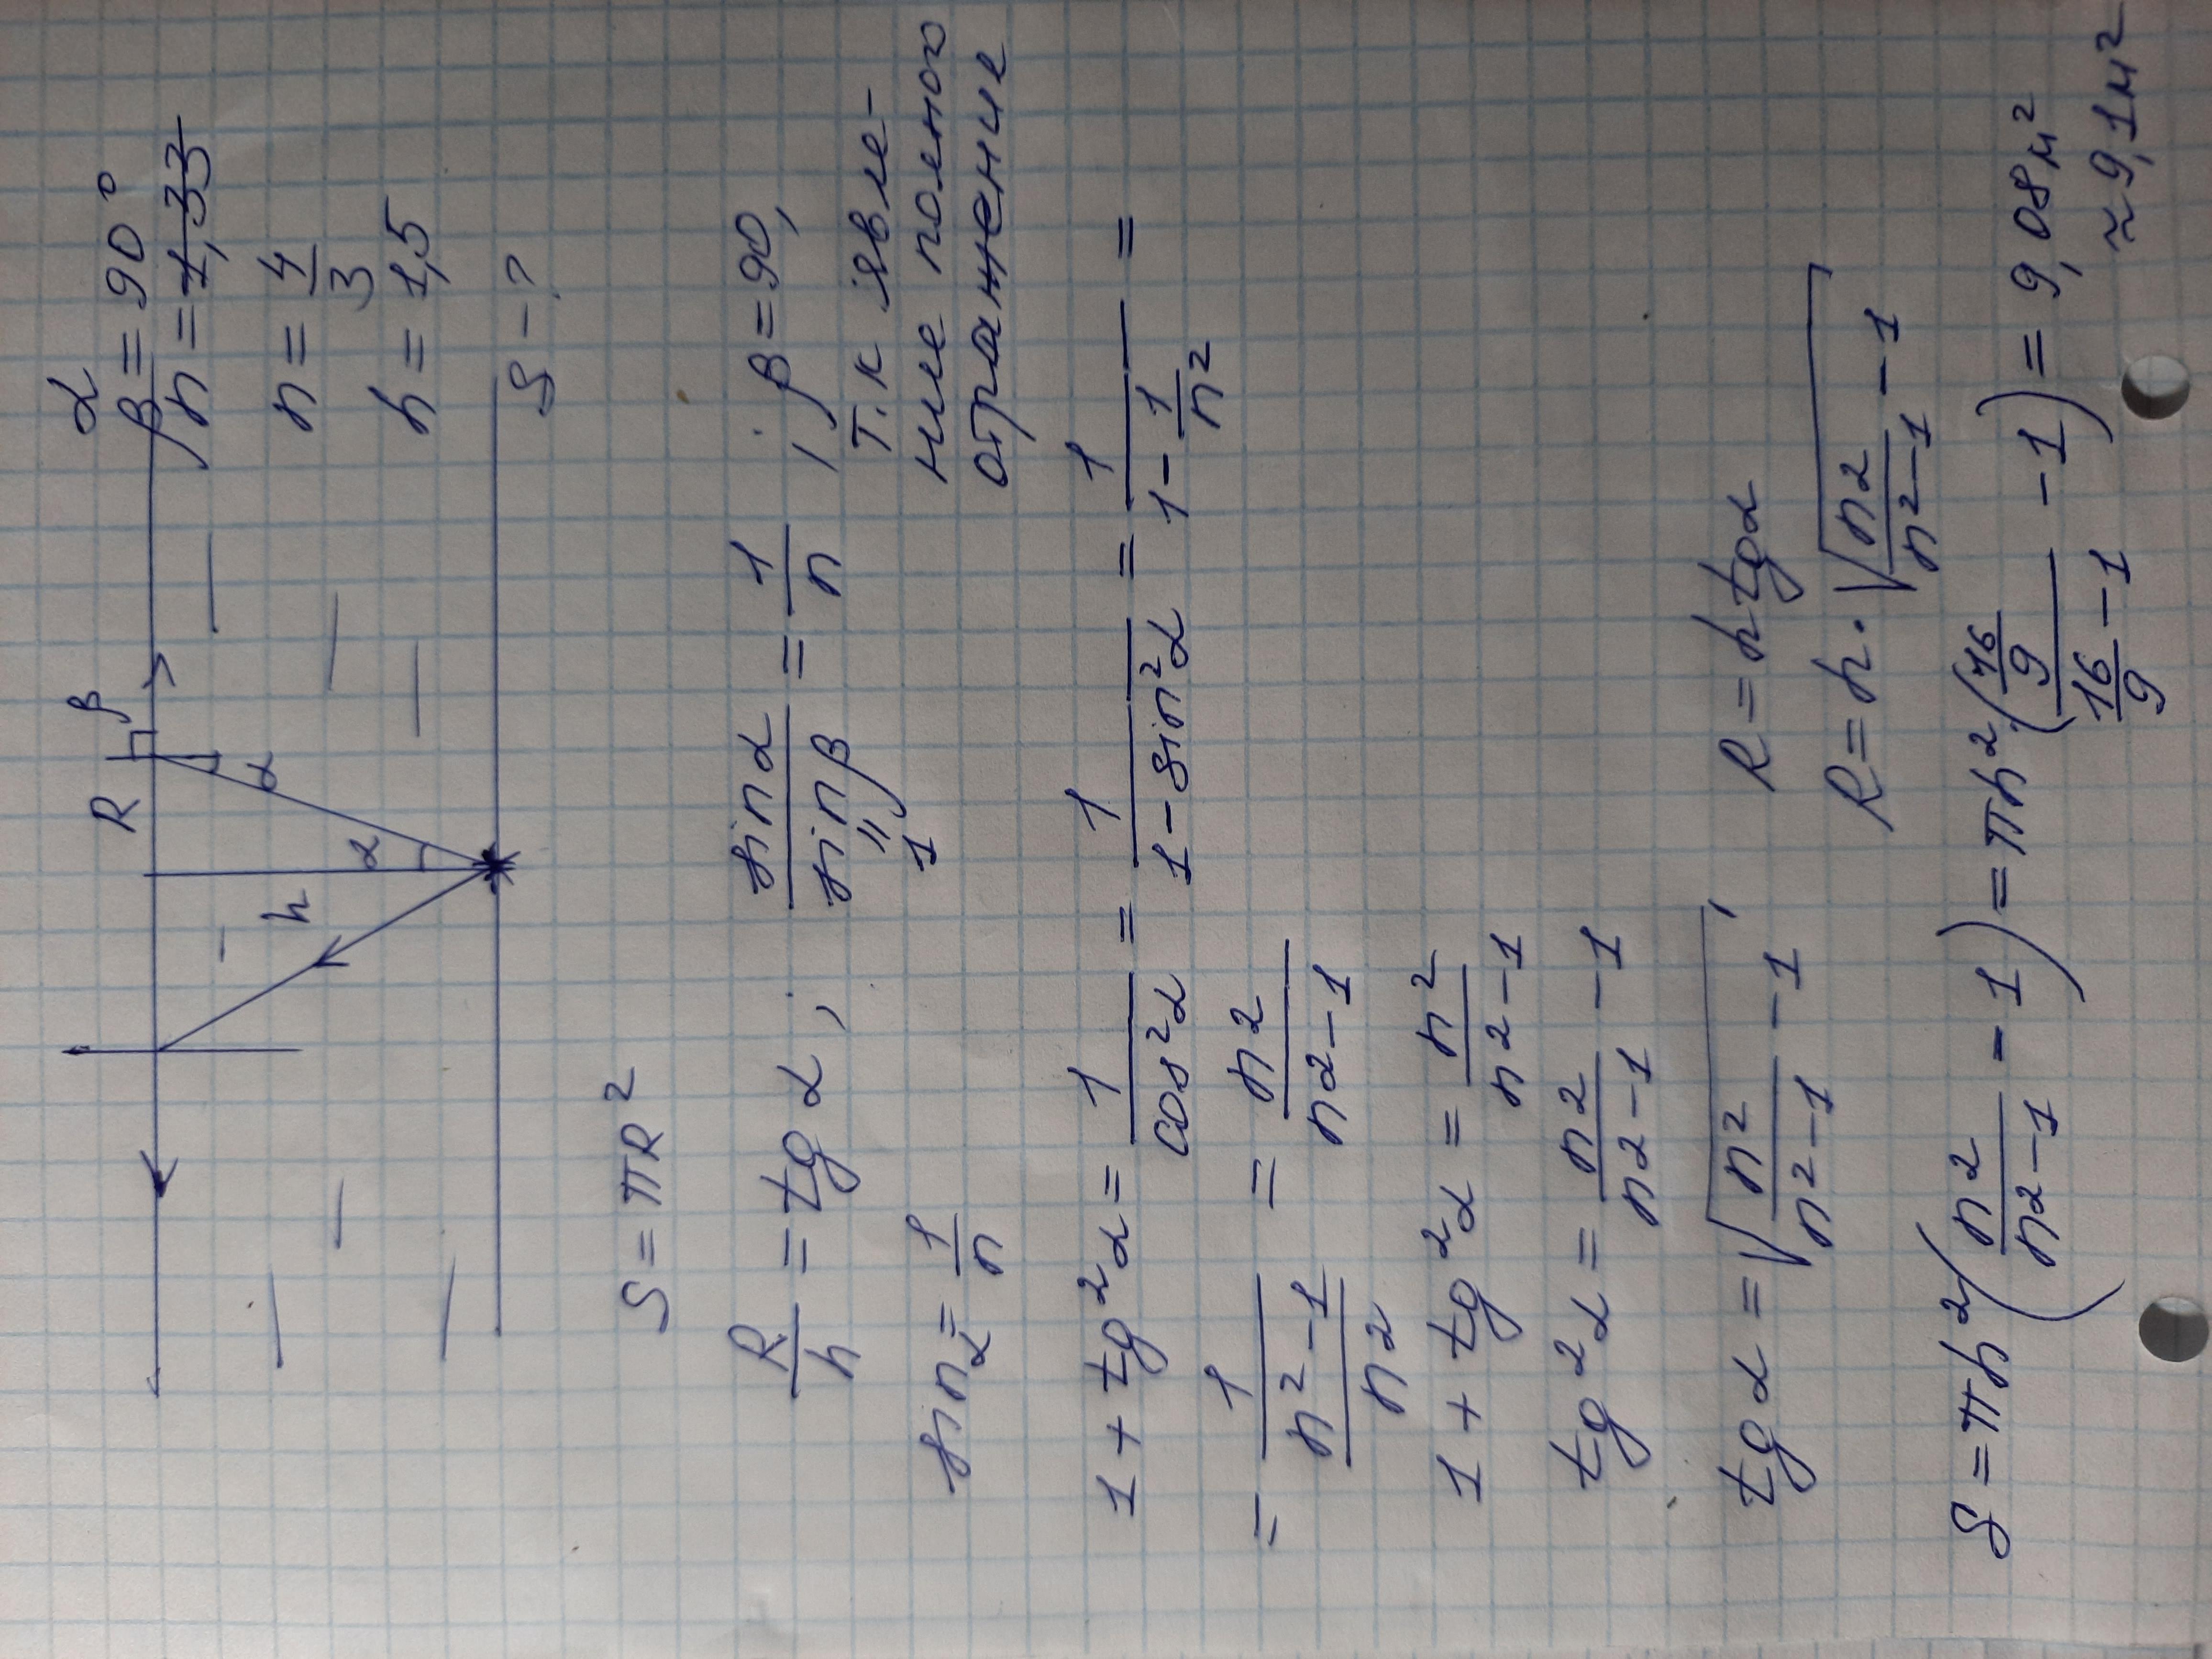 α
β = 90°
n = 1,33
n = 4/3
h = 1,5
S - ?
R
β
α
α
h
S = πR²
R/h = tg α ; sin α / sin β = 1/n ; β = 90,
" 1
т.к явле-
ние полного
отражение
sin α = 1/n
1 + tg²α = 1/cos²α = 1/(1 - sin²α) = 1/(1 - 1/n²) =
= 1/((n² - 1)/n²) = n²/(n² - 1)
1 + tg²α = n²/(n² - 1)
tg²α = n²/(n² - 1) - 1
tg α = √(n²/(n² - 1) - 1) , R = h tg α
R = h · √(n²/(n² - 1) - 1)
S = πh²(n²/(n² - 1) - 1) = πh²((16/9)/(16/9 - 1) - 1) = 9,08 м²
≈ 9,1 м²